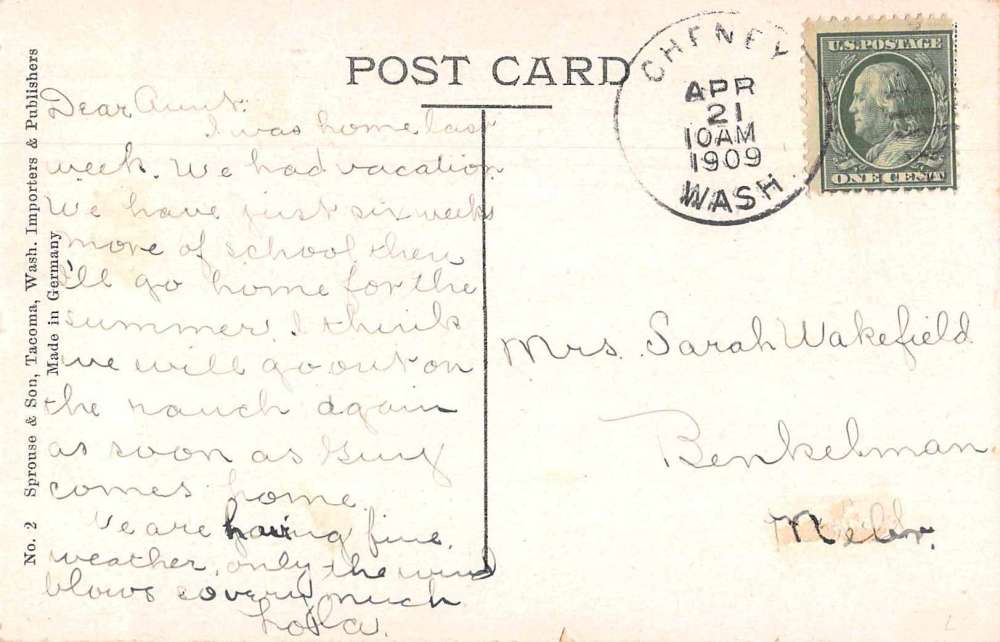 POST CARD
CHENEY
APR
21
10AM
1909
WASH.
U.S. POSTAGE
ONE CENT
No. 2 Sprouse & Son, Tacoma, Wash. Importers & Publishers
Made in Germany
Dear Aunt:
I was home last
week. We had vacation
We have just six weeks
more of school then
I'll go home for the
summer. I think
we will go out on
the ranch again
as soon as Guy
comes home.
We are having fine
weather, only the wind
blows so very much
Lola.
Mrs. Sarah Wakefield
Benkelman
Nebr.